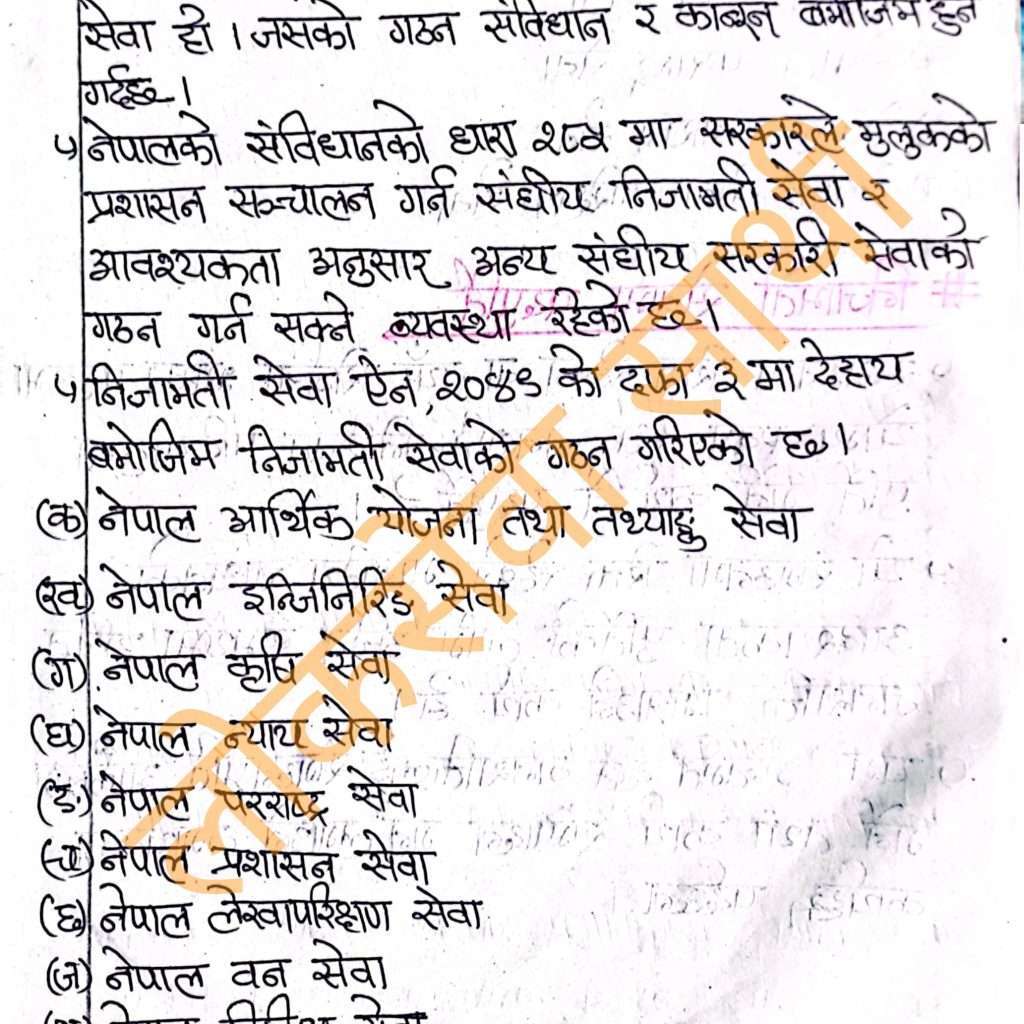 सेवा हो । जसको गठन संविधान र कानून बमोजिम हुने
गर्दछ ।
५ नेपालको संविधानको धारा २८५ मा सरकारले मुलुकको
प्रशासन सञ्चालन गर्न संघीय निजामती सेवा र
आवश्यकता अनुसार अन्य संघीय सरकारी सेवाको
गठन गर्न सक्ने व्यवस्था रहेको छ ।
५ निजामती सेवा ऐन, २०४९ को दफा ३ मा देहाय
बमोजिम निजामती सेवाको गठन गरिएको छ ।
(क) नेपाल आर्थिक योजना तथा तथ्याङ्क सेवा
(ख) नेपाल इन्जिनिरिङ सेवा
(ग) नेपाल कृषि सेवा
(घ) नेपाल न्याय सेवा
(ङ) नेपाल परराष्ट्र सेवा
(च) नेपाल प्रशासन सेवा
(छ) नेपाल लेखापरिक्षण सेवा
(ज) नेपाल वन सेवा
लोकसेवा साथी